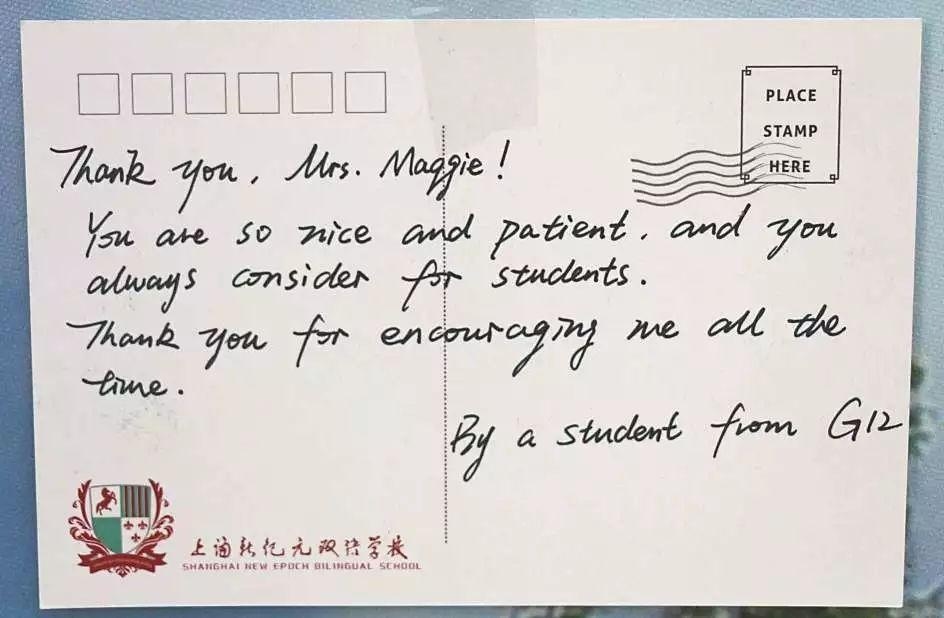 PLACE
STAMP
HERE
Thank you, Mrs. Maggie!
You are so nice and patient, and you
always consider for students.
Thank you for encouraging me all the
time.
By a student from G12
上海新纪元双语学校
SHANGHAI NEW EPOCH BILINGUAL SCHOOL